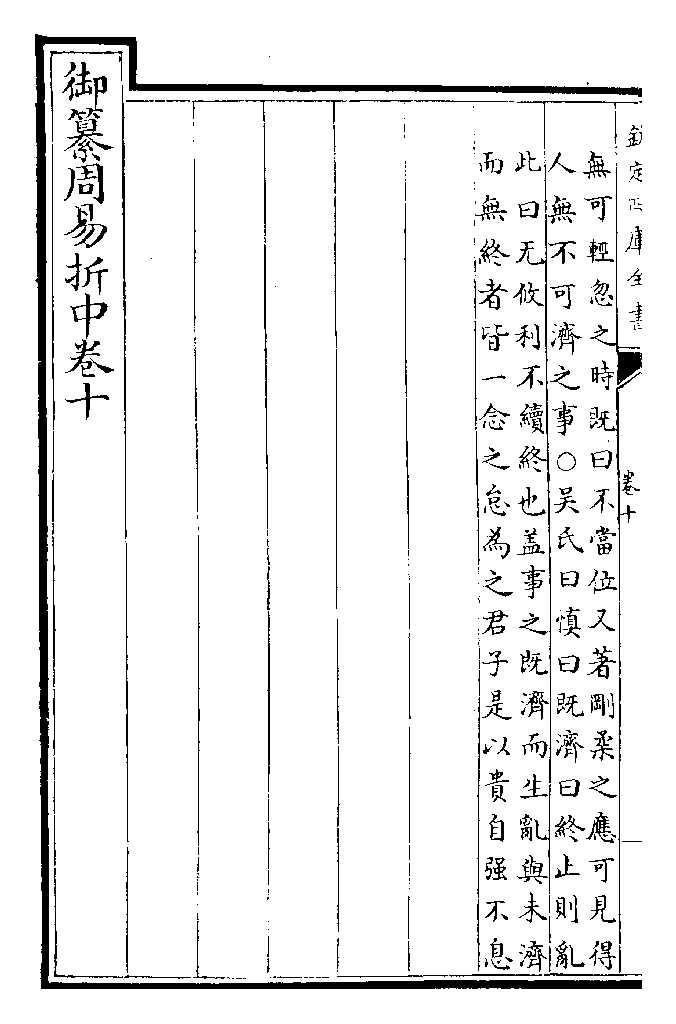 欽定四庫全書
卷十
無可輕忽之時既曰不當位又著剛柔之應可見得
人無不可濟之事○吴氏曰慎曰既濟曰終止則亂
此曰无攸利不續終也盖事之既濟而生亂與未濟
而無終者皆一念之怠為之君子是以貴自强不息
御纂周易折中卷十